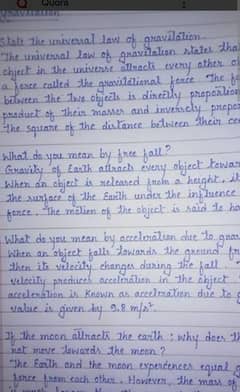 Quora
Gravitation
State the universal law of gravitation.
The universal law of gravitation states tha
object in the universe attracts every other o
a force called the gravitational force. The fo
between the two objects is directly proportion
product of their masses and inversely propor
the square of the distance between their cen
What do you mean by free fall?
Gravity of Earth attracts every object towar
When an object is released from a height, it
the surface of the Earth under the influence
force. The motion of the object is said to ha
What do you mean by acceleration due to grav
When an object falls towards the ground fr
then its velocity changes during the fall.
velocity produces acceleration in the object
acceleration is known as acceleration due to g
value is given by 9.8 m/s².
If the moon attracts the earth, why does th
not move towards the moon?
The Earth and the moon experiences equal g
force from each other. However, the mass of